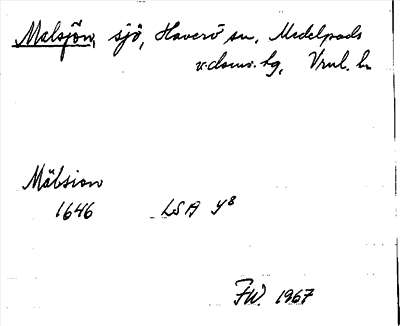 Malsjön, sjö, Haverö sn, Medelpads
v. doms. hg, Vnl. l.
Mälsion
1646 LSA Y8
FW. 1967